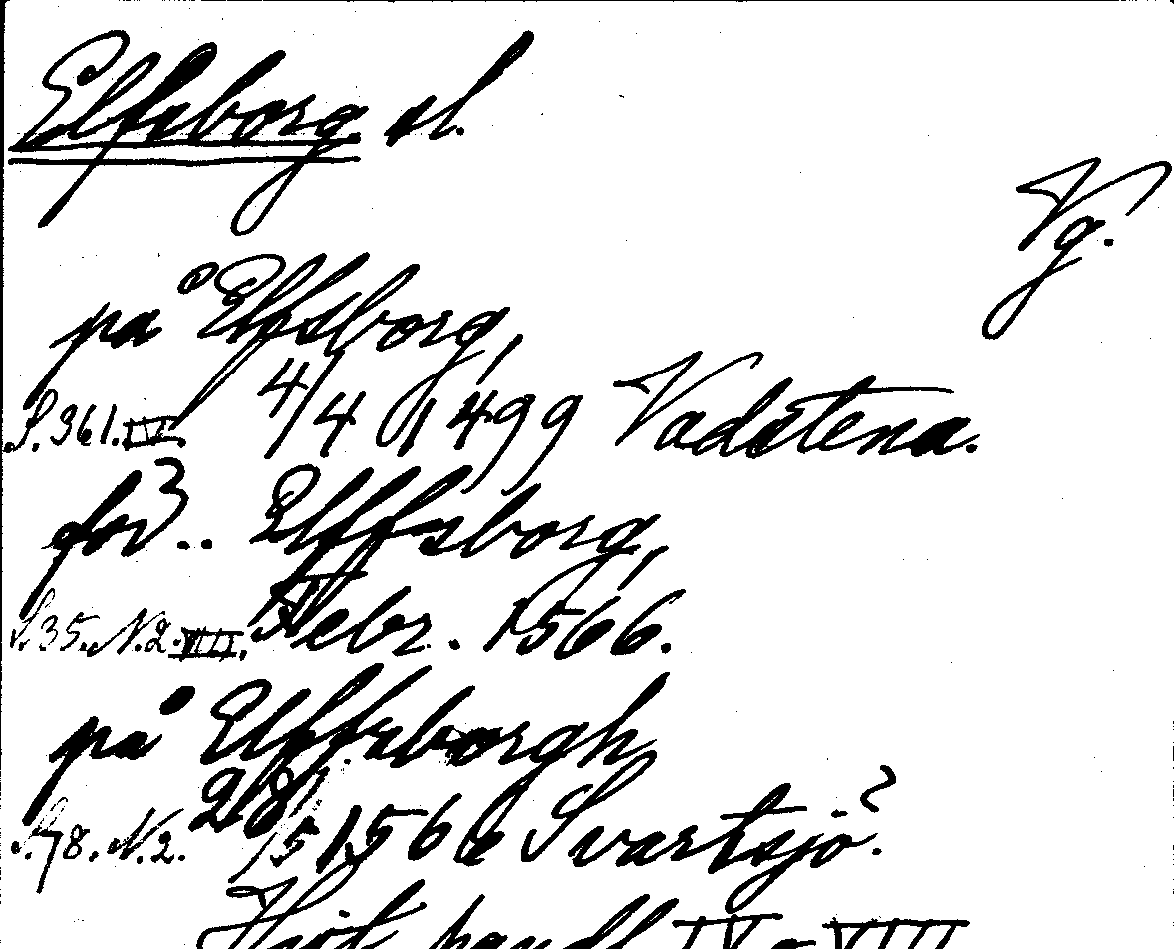 Elfsborg sl.
Vg.
på Elfsborg,
S. 361. IV. 4/4 1499 Vadstena.
för.. Elffsborg,
S. 35. N. 2. VIII. Febr. 1566.
på Elffzborgh,
S. 78. N. 2. 28/5 1566 Svartsjö.
Hist. handl. IV o VIII